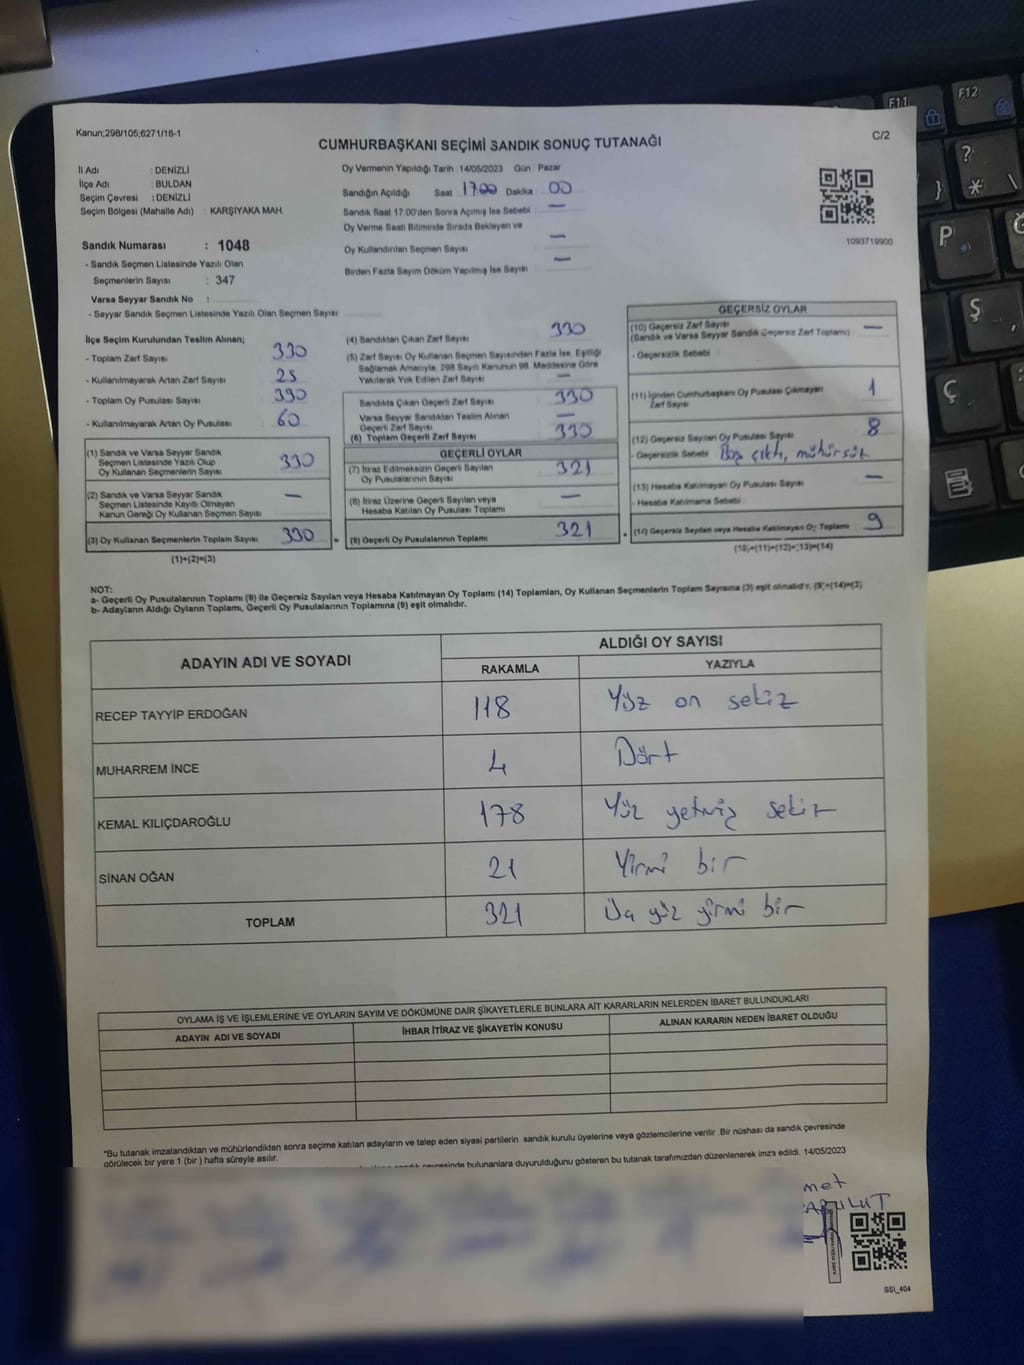 Kanun;298/105;6271/18-1
C/2
CUMHURBAŞKANI SEÇİMİ SANDIK SONUÇ TUTANAĞI
İl Adı : DENİZLİ
İlçe Adı : BULDAN
Seçim Çevresi : DENİZLİ
Seçim Bölgesi (Mahalle Adı) : KARŞIYAKA MAH.
Sandık Numarası : 1048
- Sandık Seçmen Listesinde Yazılı Olan
Seçmenlerin Sayısı : 347
Varsa Seyyar Sandık No :
- Seyyar Sandık Seçmen Listesinde Yazılı Olan Seçmen Sayısı
Oy Vermenin Yapıldığı Tarih : 14/05/2023 Gün : Pazar
Sandığın Açıldığı Saat 17:00 Dakika : 00
Sandık Saat 17:00'den Sonra Açımış İse Sebebi : —
Oy Verme Saati Bitiminde Sırada Bekleyen ve
Oy Kullandırılan Seçmen Sayısı —
Birden Fazla Sayım Döküm Yapılmış İse Sayısı —
1093719900
İlçe Seçim Kurulundan Teslim Alınan;
- Toplam Zarf Sayısı 330
- Kullanılmayarak Artan Zarf Sayısı 25
- Toplam Oy Pusulası Sayısı 390
- Kullanılmayarak Artan Oy Pusulası 60
(1) Sandık ve Varsa Seyyar Sandık
Seçmen Listesinde Yazılı Olup
Oy Kullanan Seçmenlerin Sayısı 330
(2) Sandık ve Varsa Seyyar Sandık
Seçmen Listesinde Kayıtlı Olmayan
Kanun Gereği Oy Kullanan Seçmen Sayısı —
(3) Oy Kullanan Seçmenlerin Toplam Sayısı 330
(1)+(2)=(3)
(4) Sandıktan Çıkan Zarf Sayısı 330
(5) Zarf Sayısı Oy Kullanan Seçmen Sayısından Fazla İse, Eşitliği
Sağlamak Amacıyla, 298 Sayılı Kanunun 98. Maddesine Göre
Yakılarak Yok Edilen Zarf Sayısı —
Sandıkta Çıkan Geçerli Zarf Sayısı 330
Varsa Seyyar Sandıktan Teslim Alınan
Geçerli Zarf Sayısı —
(6) Toplam Geçerli Zarf Sayısı 330
GEÇERLİ OYLAR
(7) İtiraz Edilmeksizin Geçerli Sayılan
Oy Pusulalarının Sayısı 321
(8) İtiraz Üzerine Geçerli Sayılan veya
Hesaba Katılan Oy Pusulası Toplamı —
(9) Geçerli Oy Pusulalarının Toplamı 321
GEÇERSİZ OYLAR
(10) Geçersiz Zarf Sayısı
(Sandık ve Varsa Seyyar Sandık Geçersiz Zarf Toplamı) —
- Geçersizlik Sebebi
(11) İçinden Cumhurbaşkanı Oy Pusulası Çıkmayan
Zarf Sayısı 1
(12) Geçersiz Sayılan Oy Pusulası Sayısı 8
- Geçersizlik Sebebi Boş çıktı, mühürsüz
(13) Hesaba Katılmayan Oy Pusulası Sayısı —
- Hesaba Katılmama Sebebi
(14) Geçersiz Sayılan veya Hesaba Katılmayan Oy Toplamı 9
(10)+(11)+(12)+(13)=(14)
NOT:
a- Geçerli Oy Pusulalarının Toplamı (9) ile Geçersiz Sayılan veya Hesaba Katılmayan Oy Toplamı (14) Toplamları, Oy Kullanan Seçmenlerin Toplam Sayısına (3) eşit olmalıdır. (9)+(14)=(3)
b- Adayların Aldığı Oyların Toplamı, Geçerli Oy Pusulalarının Toplamına (9) eşit olmalıdır.
ADAYIN ADI VE SOYADI
ALDIĞI OY SAYISI
RAKAMLA YAZIYLA
RECEP TAYYİP ERDOĞAN 118 Yüz on sekiz
MUHARREM İNCE 4 Dört
KEMAL KILIÇDAROĞLU 178 Yüz yetmiş sekiz
SİNAN OĞAN 21 Yirmi bir
TOPLAM 321 Üç yüz yirmi bir
OYLAMA İŞ VE İŞLEMLERİNE VE OYLARIN SAYIM VE DÖKÜMÜNE DAİR ŞİKAYETLERLE BUNLARA AİT KARARLARIN NELERDEN İBARET BULUNDUKLARI
ADAYIN ADI VE SOYADI İHBAR İTİRAZ VE ŞİKAYETİN KONUSU ALINAN KARARIN NEDEN İBARET OLDUĞU
*Bu tutanak imzalandıktan ve mühürlendikten sonra seçime katılan adayların ve talep eden siyasi partilerin sandık kurulu üyelerine veya gözlemcilerine verilir. Bir nüshası da sandık çevresinde
görülecek bir yere 1 (bir) hafta süreyle asılır.
çevresinde bulunanlara duyurulduğunu gösteren bu tutanak tarafımızdan düzenlenerek imza edildi. 14/05/2023
met
SSİ_404
F11
F12
?
*
\
}
P
Ş
Ç